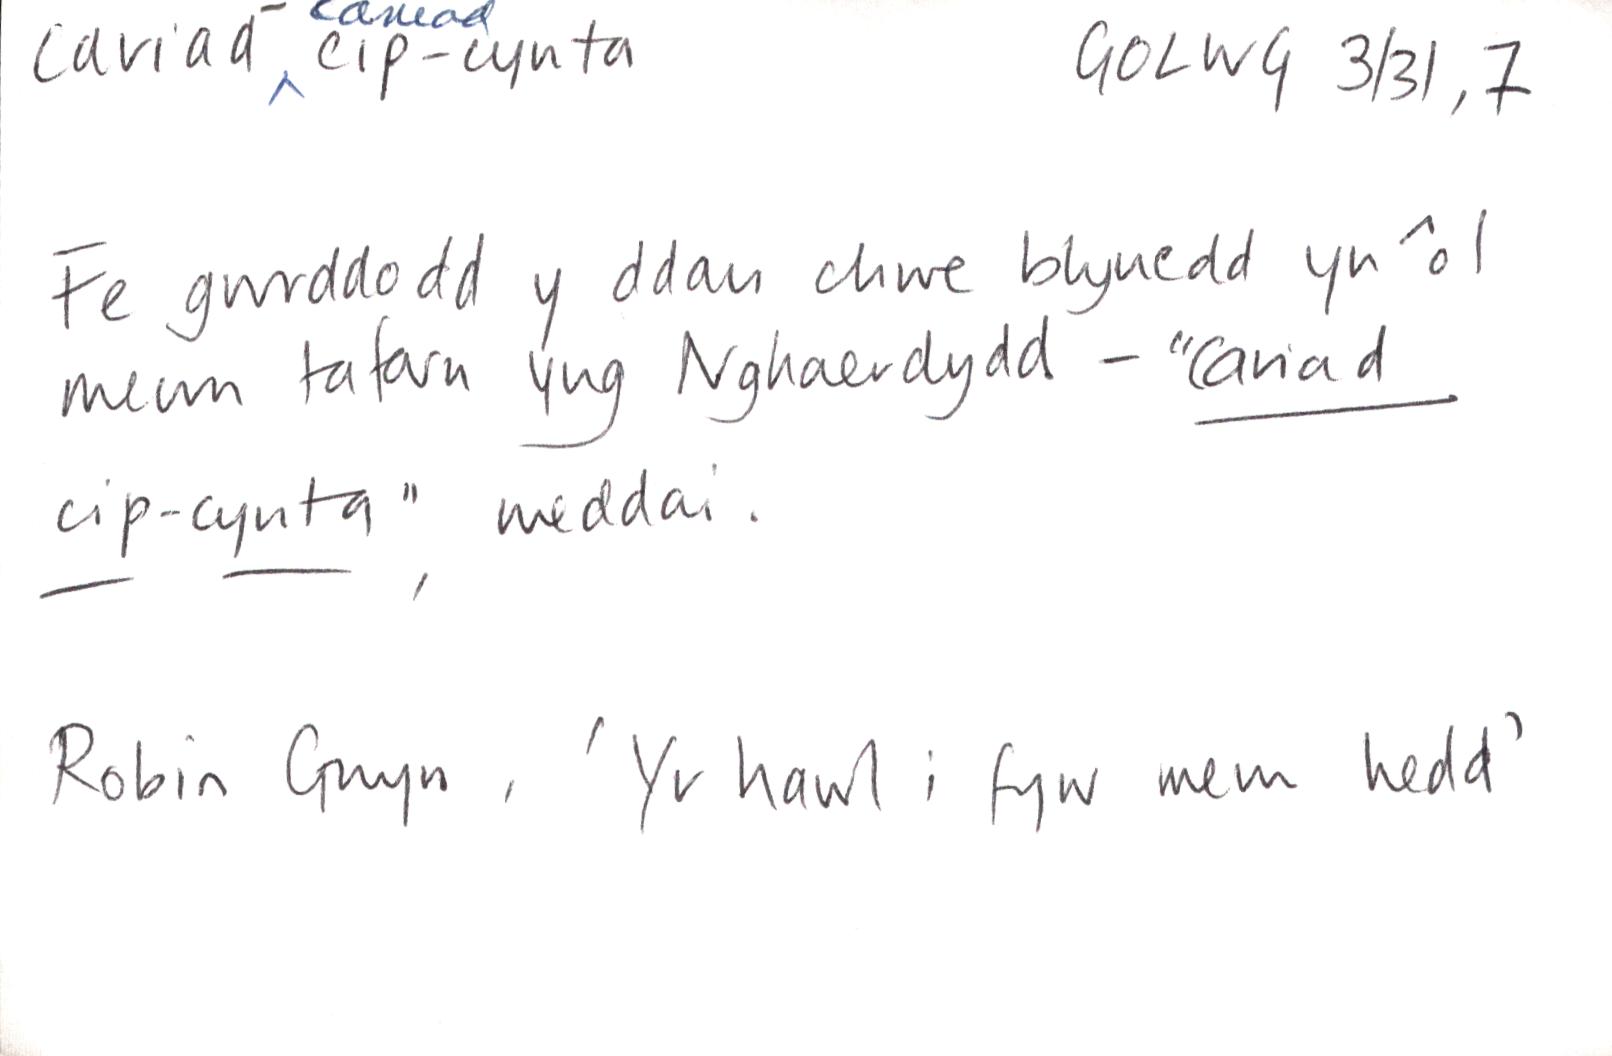 cariad cip-cynta GOLWG 3/31, 7
Fe gwrddodd y ddau chwe blynedd yn ôl
mewn tafarn yng Nghaerdydd – "Cariad
cip-cynta", meddai.
Robin Gwyn, 'Yr hawl i fyw mewn hedd'